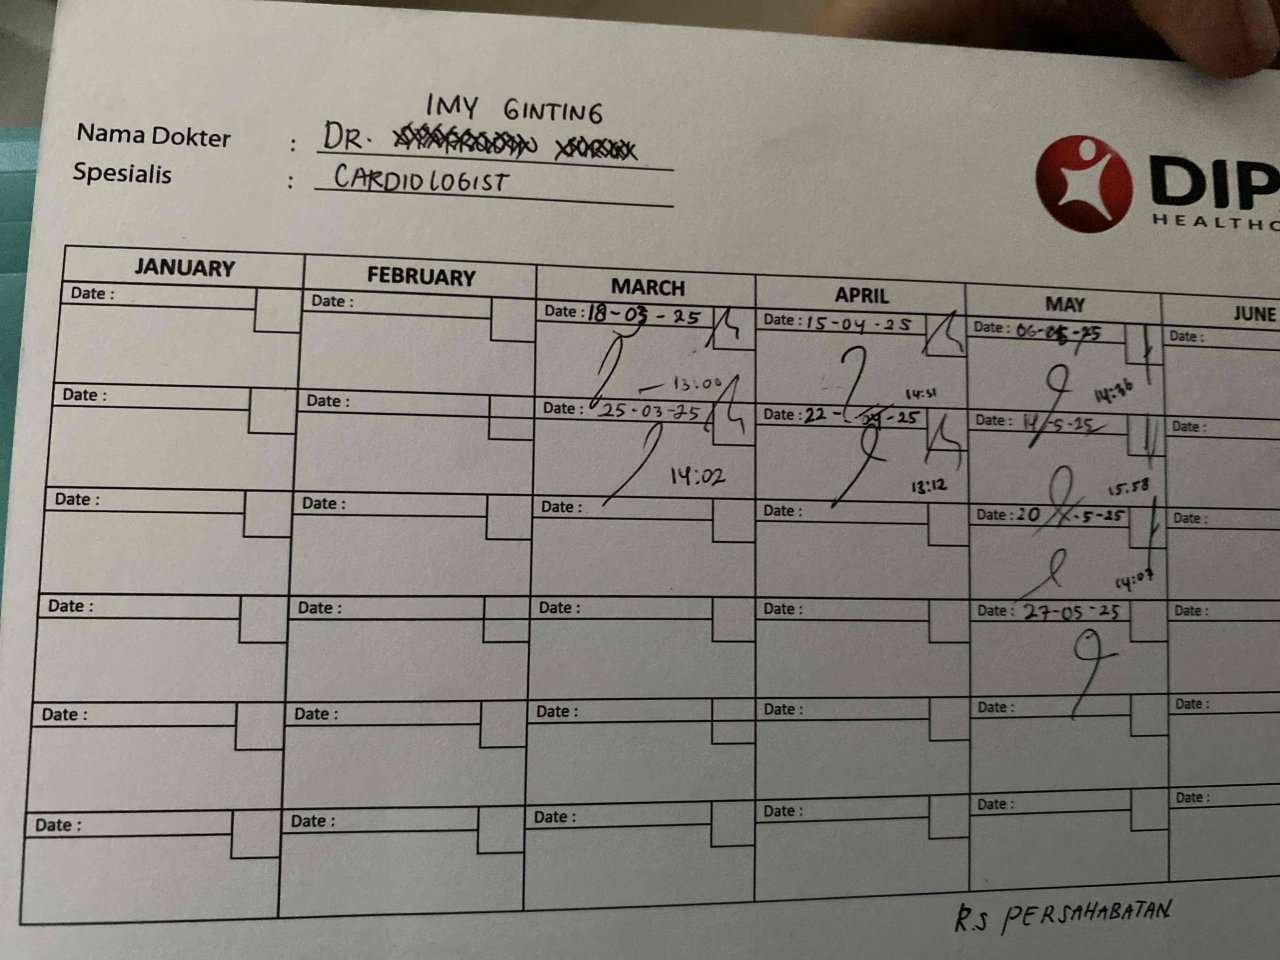 IMY GINTING
Nama Dokter : DR.
Spesialis : CARDIOLOGIST
DIP
HEALTHC
JANUARY FEBRUARY MARCH APRIL MAY JUNE
Date : Date : Date : 18-03-25 Date : 15-04-25 Date : 06-05-25 Date :
13:00 14:31 14:36
Date : Date : Date : 25-03-25 Date : 22-04-25 Date : 14-5-25 Date :
14:02 13:12 15.58
Date : Date : Date : Date : Date : 20-5-25 Date :
14:07
Date : Date : Date : Date : Date : 27-05-25 Date :
Date : Date : Date : Date : Date : Date :
Date : Date : Date : Date : Date : Date :
R.S PERSAHABATAN